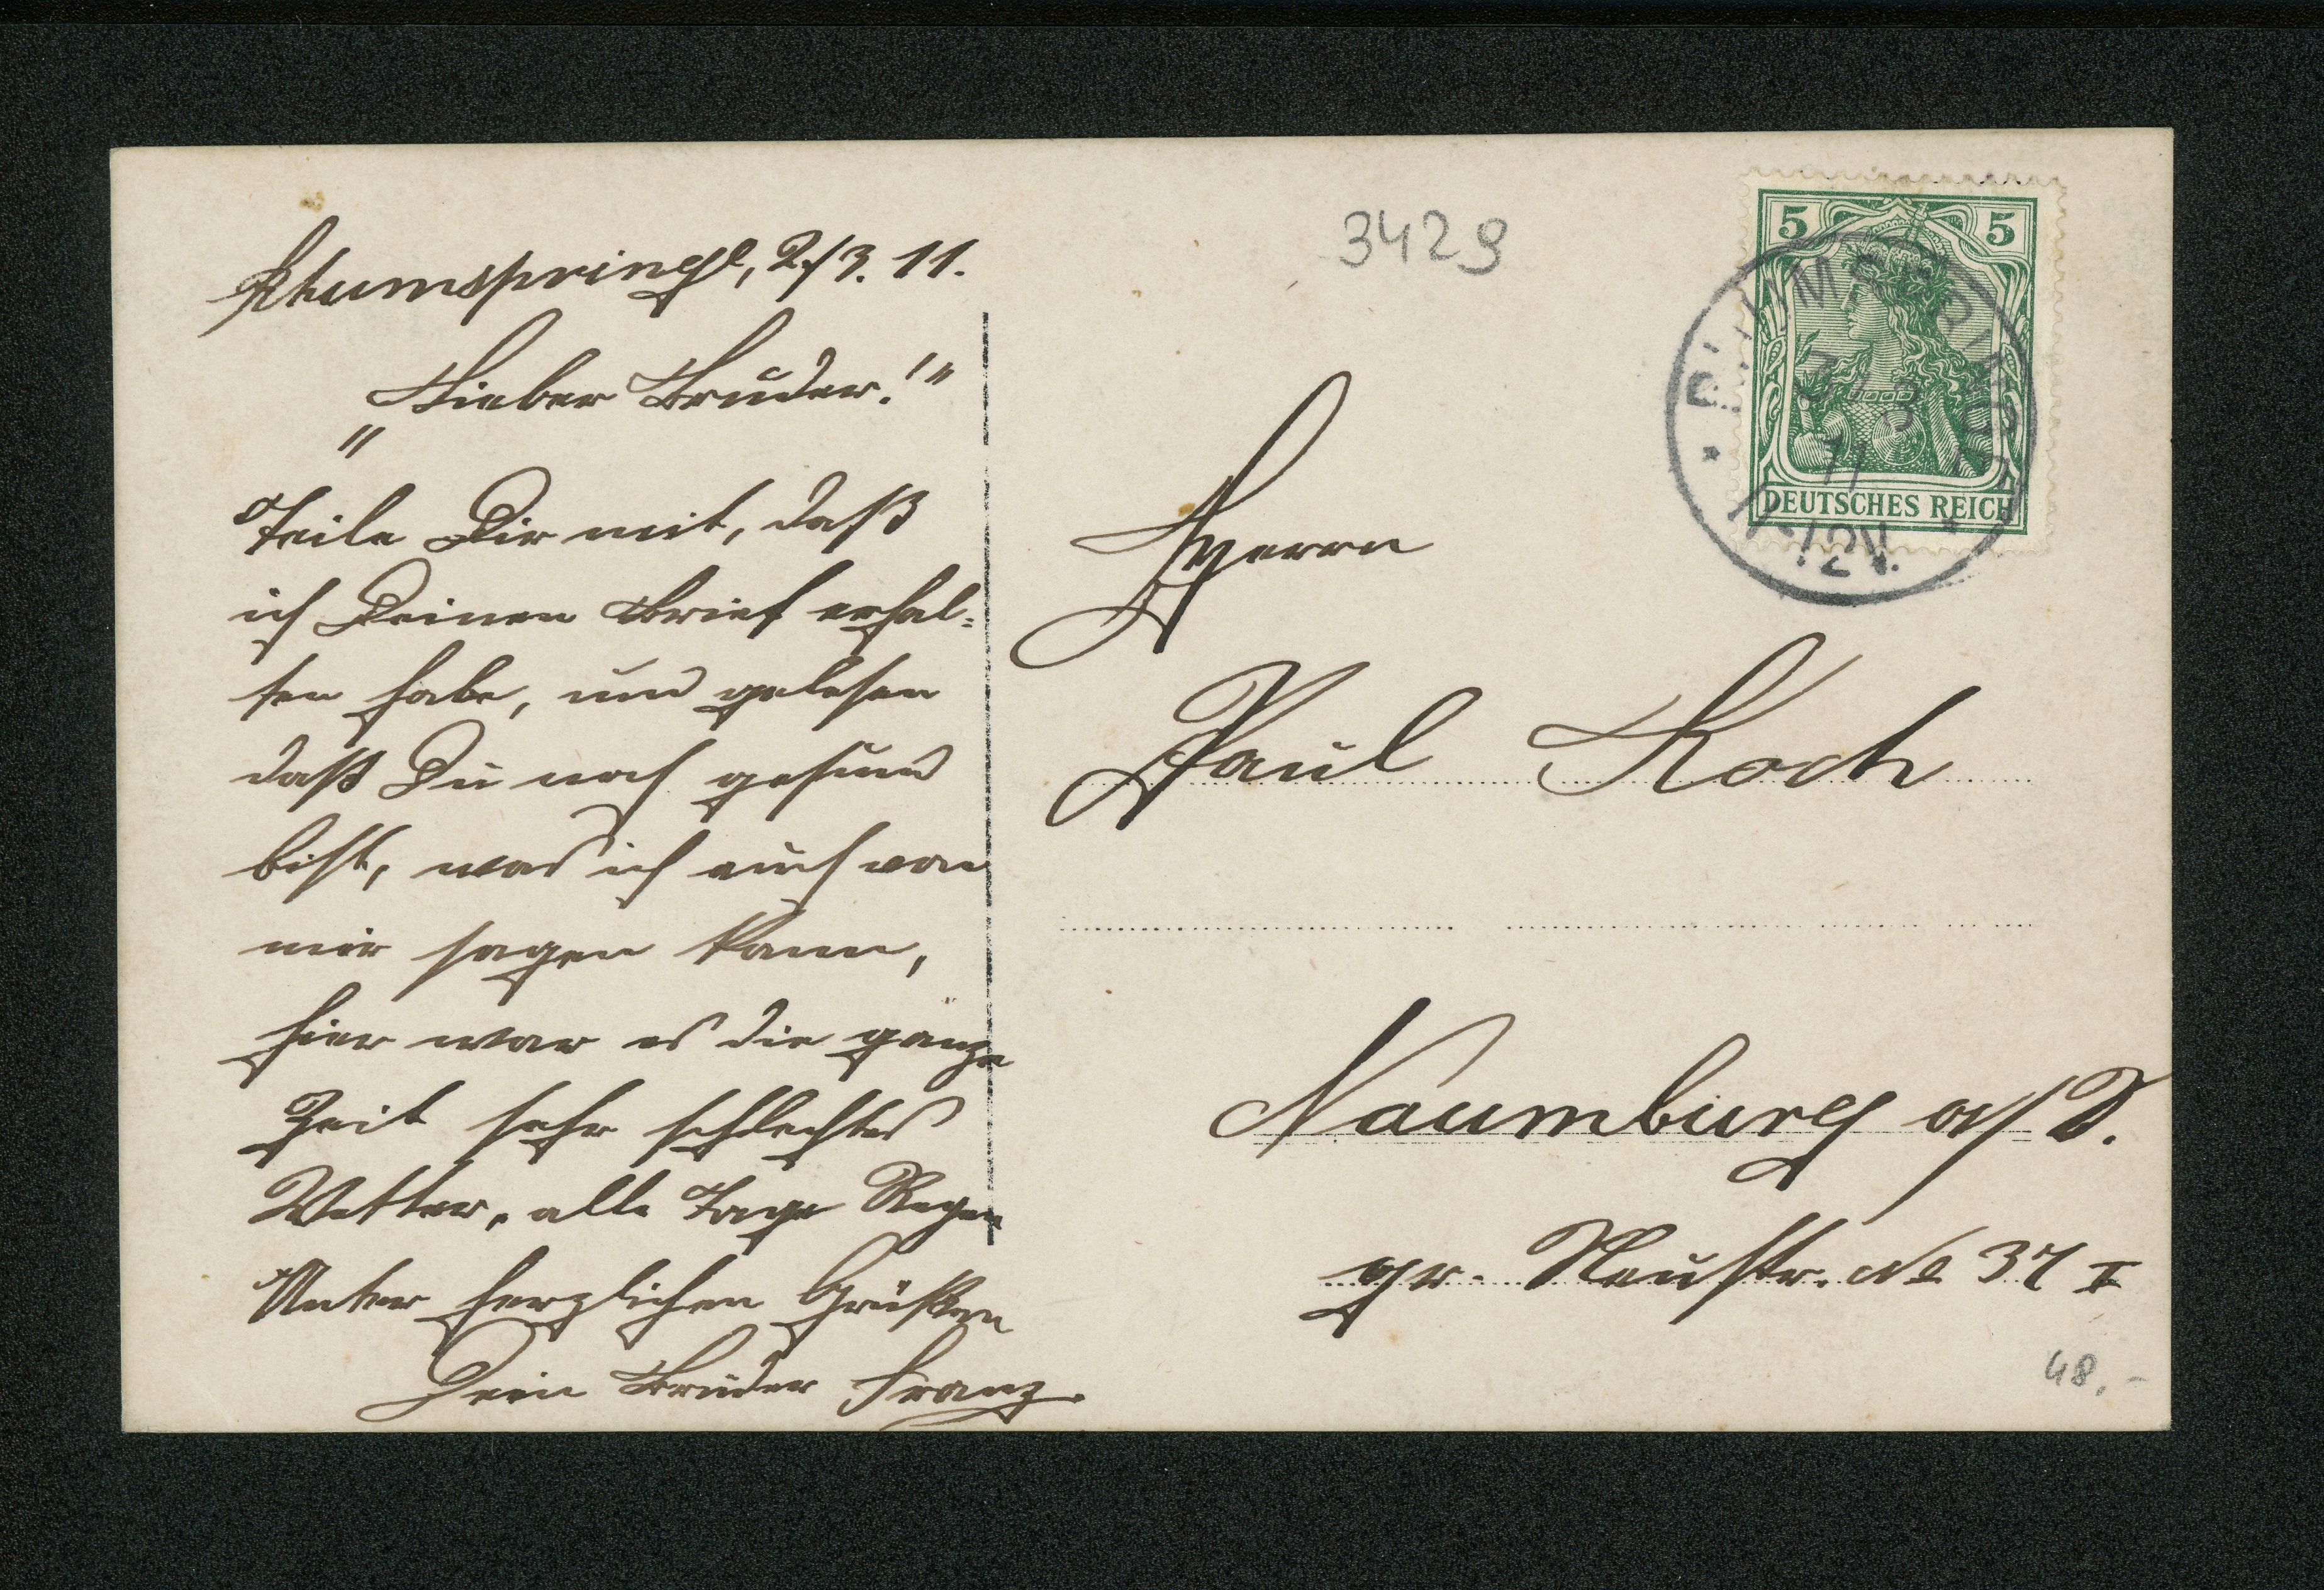 Rhumspringe, 2./3. 11.
"Lieber Bruder!"
Teile Dir mit, daß
ich Deinen Brief erhal=
ten habe, und gelesen
daß Du noch gesund
bist, was ich auch von
mir sagen kann,
hier war es die ganze
Zeit sehr schlechtes
Wetter, alle Tage Regen
Unter herzlichen Grüßen
Dein Bruder Franz.
3429
5 5
DEUTSCHES REICH
RHUMSPRINGE
3/3
11
Herrn
Paul Koch
Naumburg a/S.
gr. Neustr. No 37 I
48,-